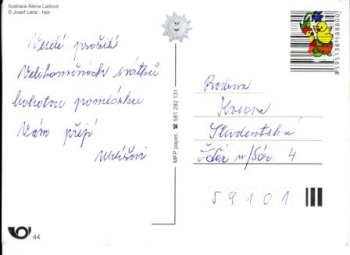 Ilustrace Alena Ladová
© Josef Lada - heir
Veselé prožití
Velikonočních svátků
bohatou pomlázku
Vám přejí
MFP paper. ☎ 581 282 131
Rodina
Kosova
Studentská
Žďár n/Sáz. 4
59101
44